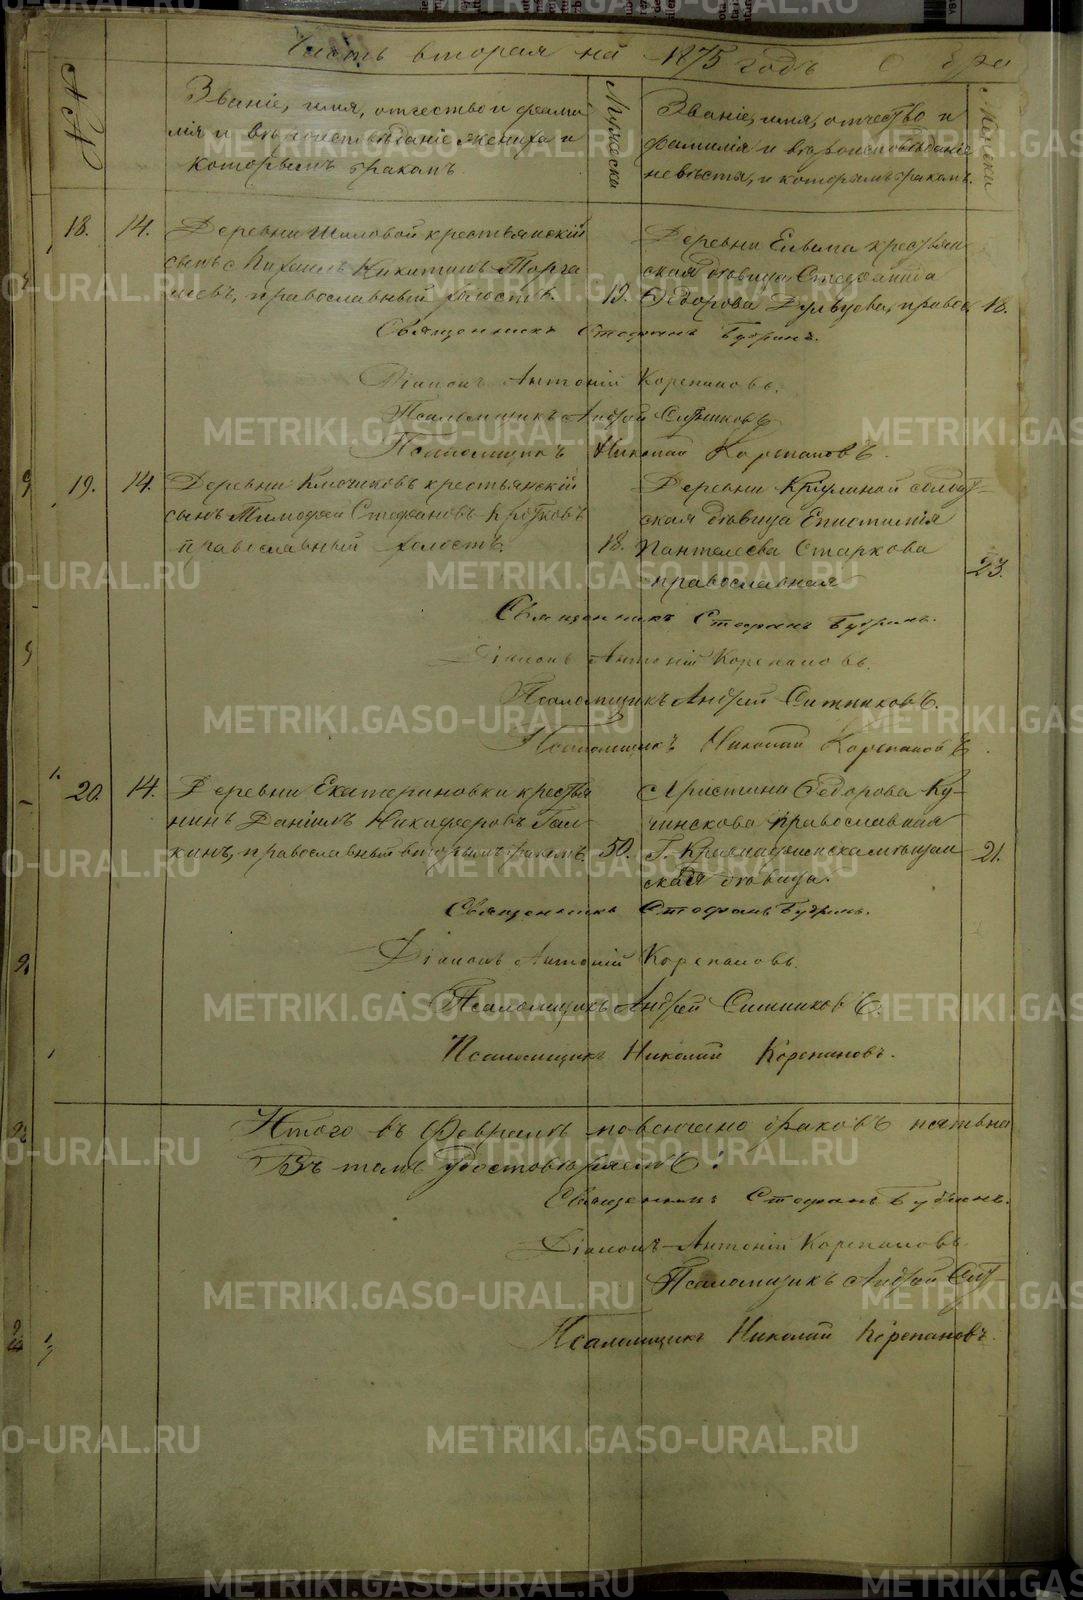 Часть вторая на 1875 годъ о бра
Званіе, имя, отчество и фами
лія и вѣроисповѣданіе жениха и
которымъ бракомъ.
Мужеска
Званіе, имя, отчество и
фамилія и вѣроисповѣданіе
невѣсты, и которымъ бракомъ.
Женски
18. 14. Деревни Шиловой крестьянскій
сынъ Михаилъ Никитинъ Торга
шевъ, православный холостъ. 19.
Деревни Ельма крестьян
ская дѣвица Стефанида
Ѳедорова Дульцова, правос. 18.
Священникъ Стефанъ Будринъ.
Діаконъ Антоній Корепановъ.
Псаломщикъ Андрей Ситниковъ
Псаломщикъ Николай Корепановъ.
19. 14. Деревни Ключиковъ крестьянскій
сынъ Тимофей Стефановъ Кротковъ
православный холостъ. 18.
Деревни Крулиной солдат-
ская дѣвица Епистимія
Пантелеева Старкова
православная 23.
Священникъ Стефанъ Будринъ.
Діаконъ Антоній Корепановъ.
Псаломщикъ Андрей Ситниковъ.
Псаломщикъ Николай Корепановъ.
20. 14. Деревни Екатериновки крестья
нинъ Даніилъ Никифоровъ Гал
кинъ, православный вторымъ бракомъ. 50.
Христина Ѳедорова Ку-
чинскова православная
Г. Красноуфимска мѣщан
ская дѣвица. 21.
Священникъ Стефанъ Будринъ.
Діаконъ Антоній Корепановъ.
Псаломщикъ Андрей Ситниковъ.
Псаломщикъ Николай Корепановъ.
Итого въ Февралѣ повенчано браковъ
Въ томъ удостовѣряемъ:
Священникъ Стефанъ Будринъ.
Діаконъ Антоній Корепановъ
Псаломщикъ Андрей Сит-
Псаломщикъ Николай Корепановъ.
METRIKI.GASO-URAL.RU